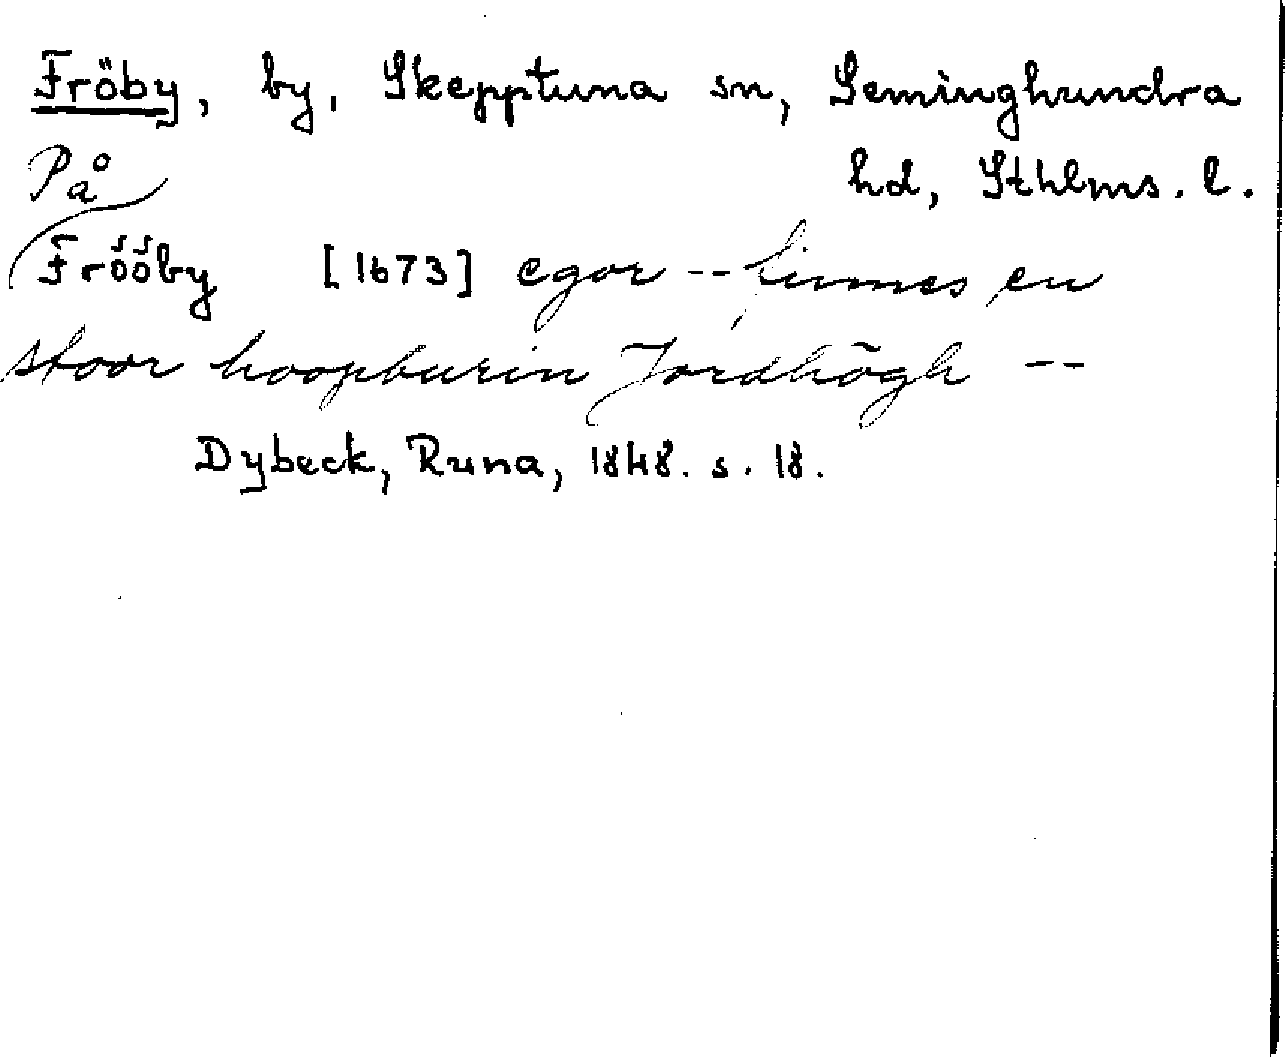 Fröby, by, Skepptuna sn, Seminghundra
På hd, Sthlms. l.
Frööby [1673] egor -- finnes en
stoor hoopburin Jordhögh --
Dybeck, Runa, 1848. s. 18.